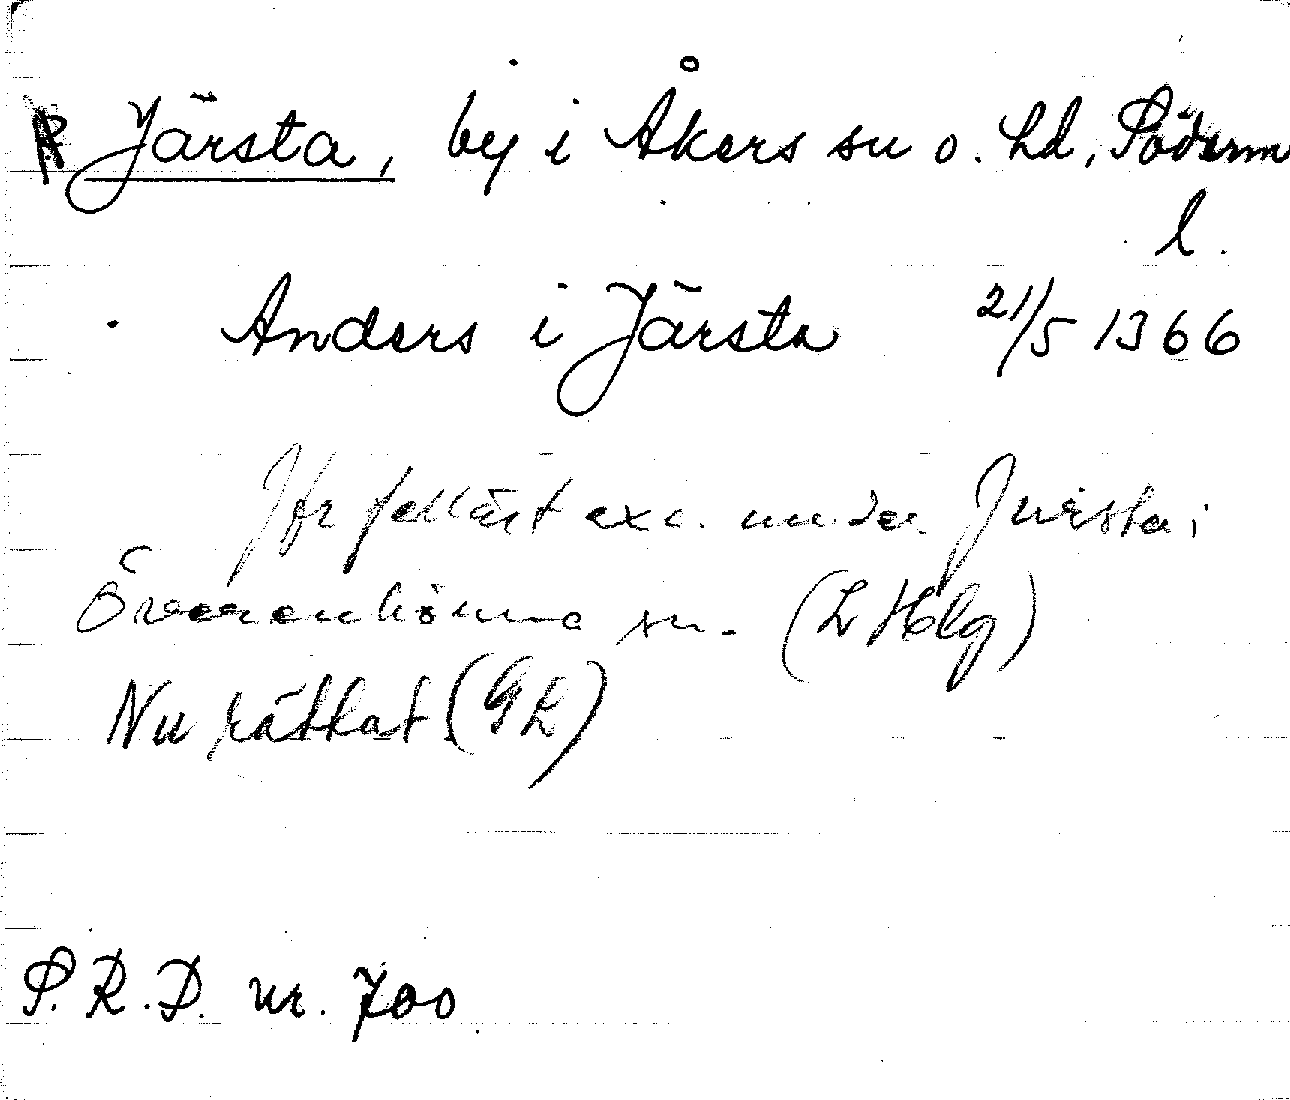 R Järsta, by i Åkers sn o. hd, Söderm
l.
Anders i Järsta 21/5 1366
Jfr felläst exc. under Jursta i
Överenhörna sn. (L Hlg)
Nu rättat (GL)
S.R.D. nr. 700